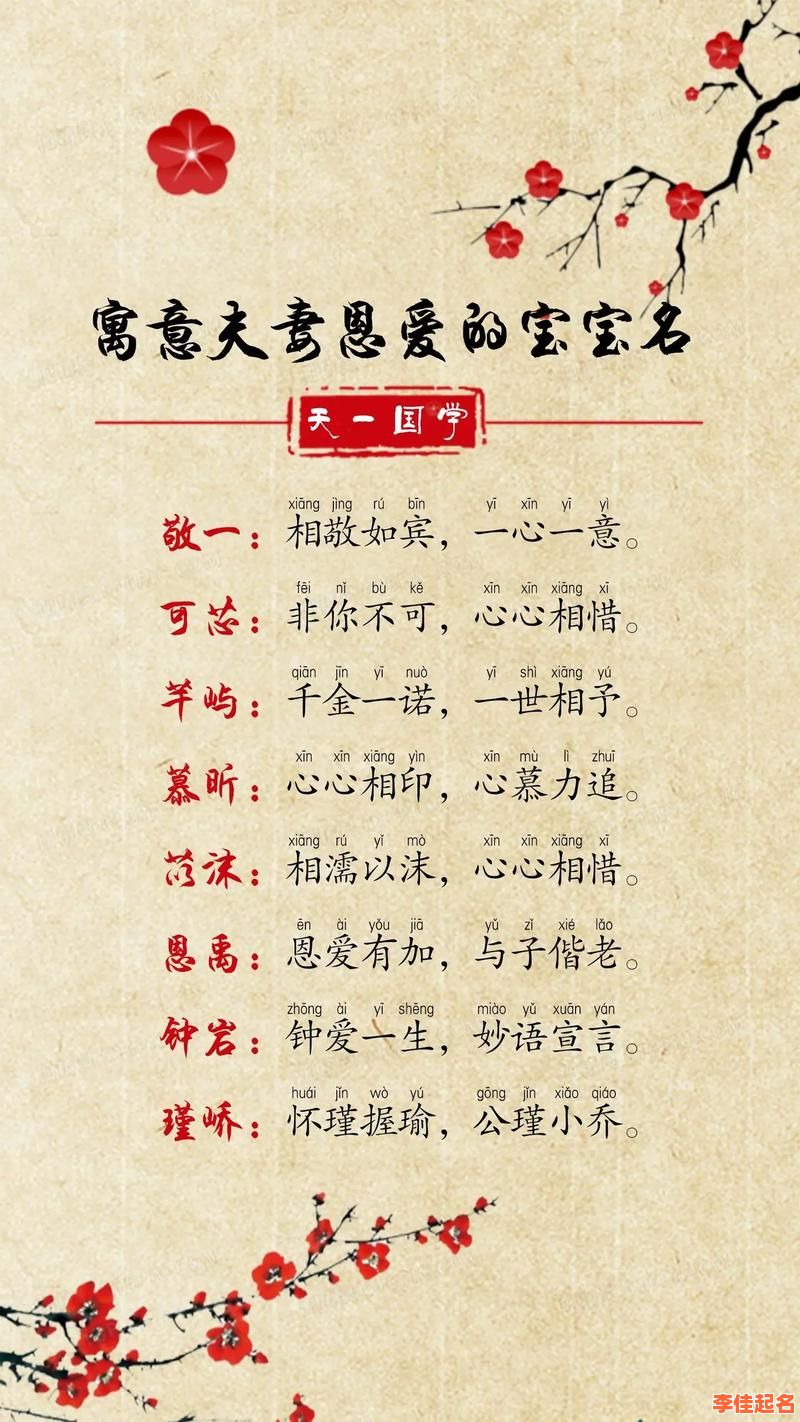 寓意夫妻恩爱的宝宝名
天一国学
xiāng jìng rú bīn yī xīn yī yì
敬一：相敬如宾，一心一意。
fēi nǐ bù kě xīn xīn xiāng xī
可芯：非你不可，心心相惜。
qiān jīn yī nuò yī shì xiāng yú
芊屿：千金一诺，一世相予。
xīn xīn xiāng yìn xīn mù lì zhuī
慕昕：心心相印，心慕力追。
xiāng rú yǐ mò xīn xīn xiāng xī
苡沫：相濡以沫，心心相惜。
ēn ài yǒu jiā yǔ zǐ xié lǎo
恩禹：恩爱有加，与子偕老。
zhōng ài yī shēng miào yǔ xuān yán
钟岩：钟爱一生，妙语宣言。
huái jǐn wò yú gōng jǐn xiǎo qiáo
瑾峤：怀瑾握瑜，公瑾小乔。
李佳起名